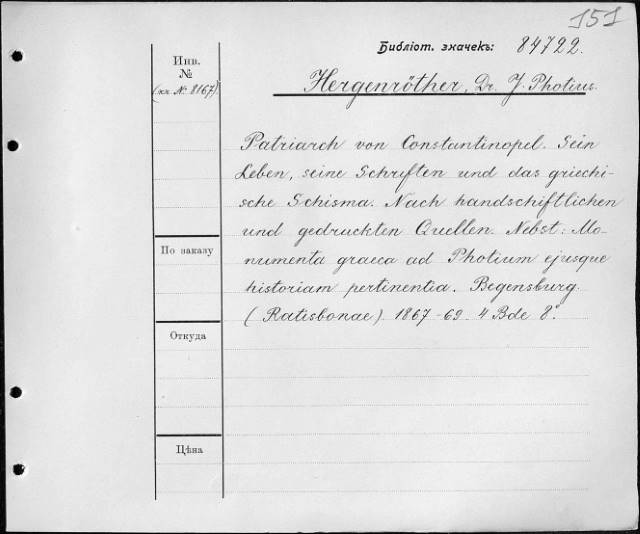 151
Библіот. значекъ: 84722.
Инв.
№
(кн. № 8167)
Hergenröther, Dr. J. Photius.
Patriarch von Constantinopel. Sein
Leben, seine Schriften und das griechi-
sche Schisma. Nach handschiftlichen
und gedruckten Quellen. Nebst: Mo-
numenta graeca ad Photium ejusque
historiam pertinentia. Begensburg.
(Ratisbonae). 1867-69. 4 Bde 8°.
По заказу
Откуда
Цѣна